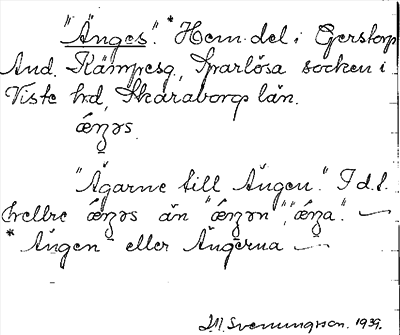 "Änges". * Hem.del i Gerstorp
And. Kämpesg., Sparlösa socken i
Viste hd, Skaraborgs län.
ǽŋəs.
"Ägarne till Ängen." I d.s.
hellre ǽŋəs än "ǽŋən", "ǽŋa".
* Ängen eller Ängerna
J.M. Svenungsson. 1939.